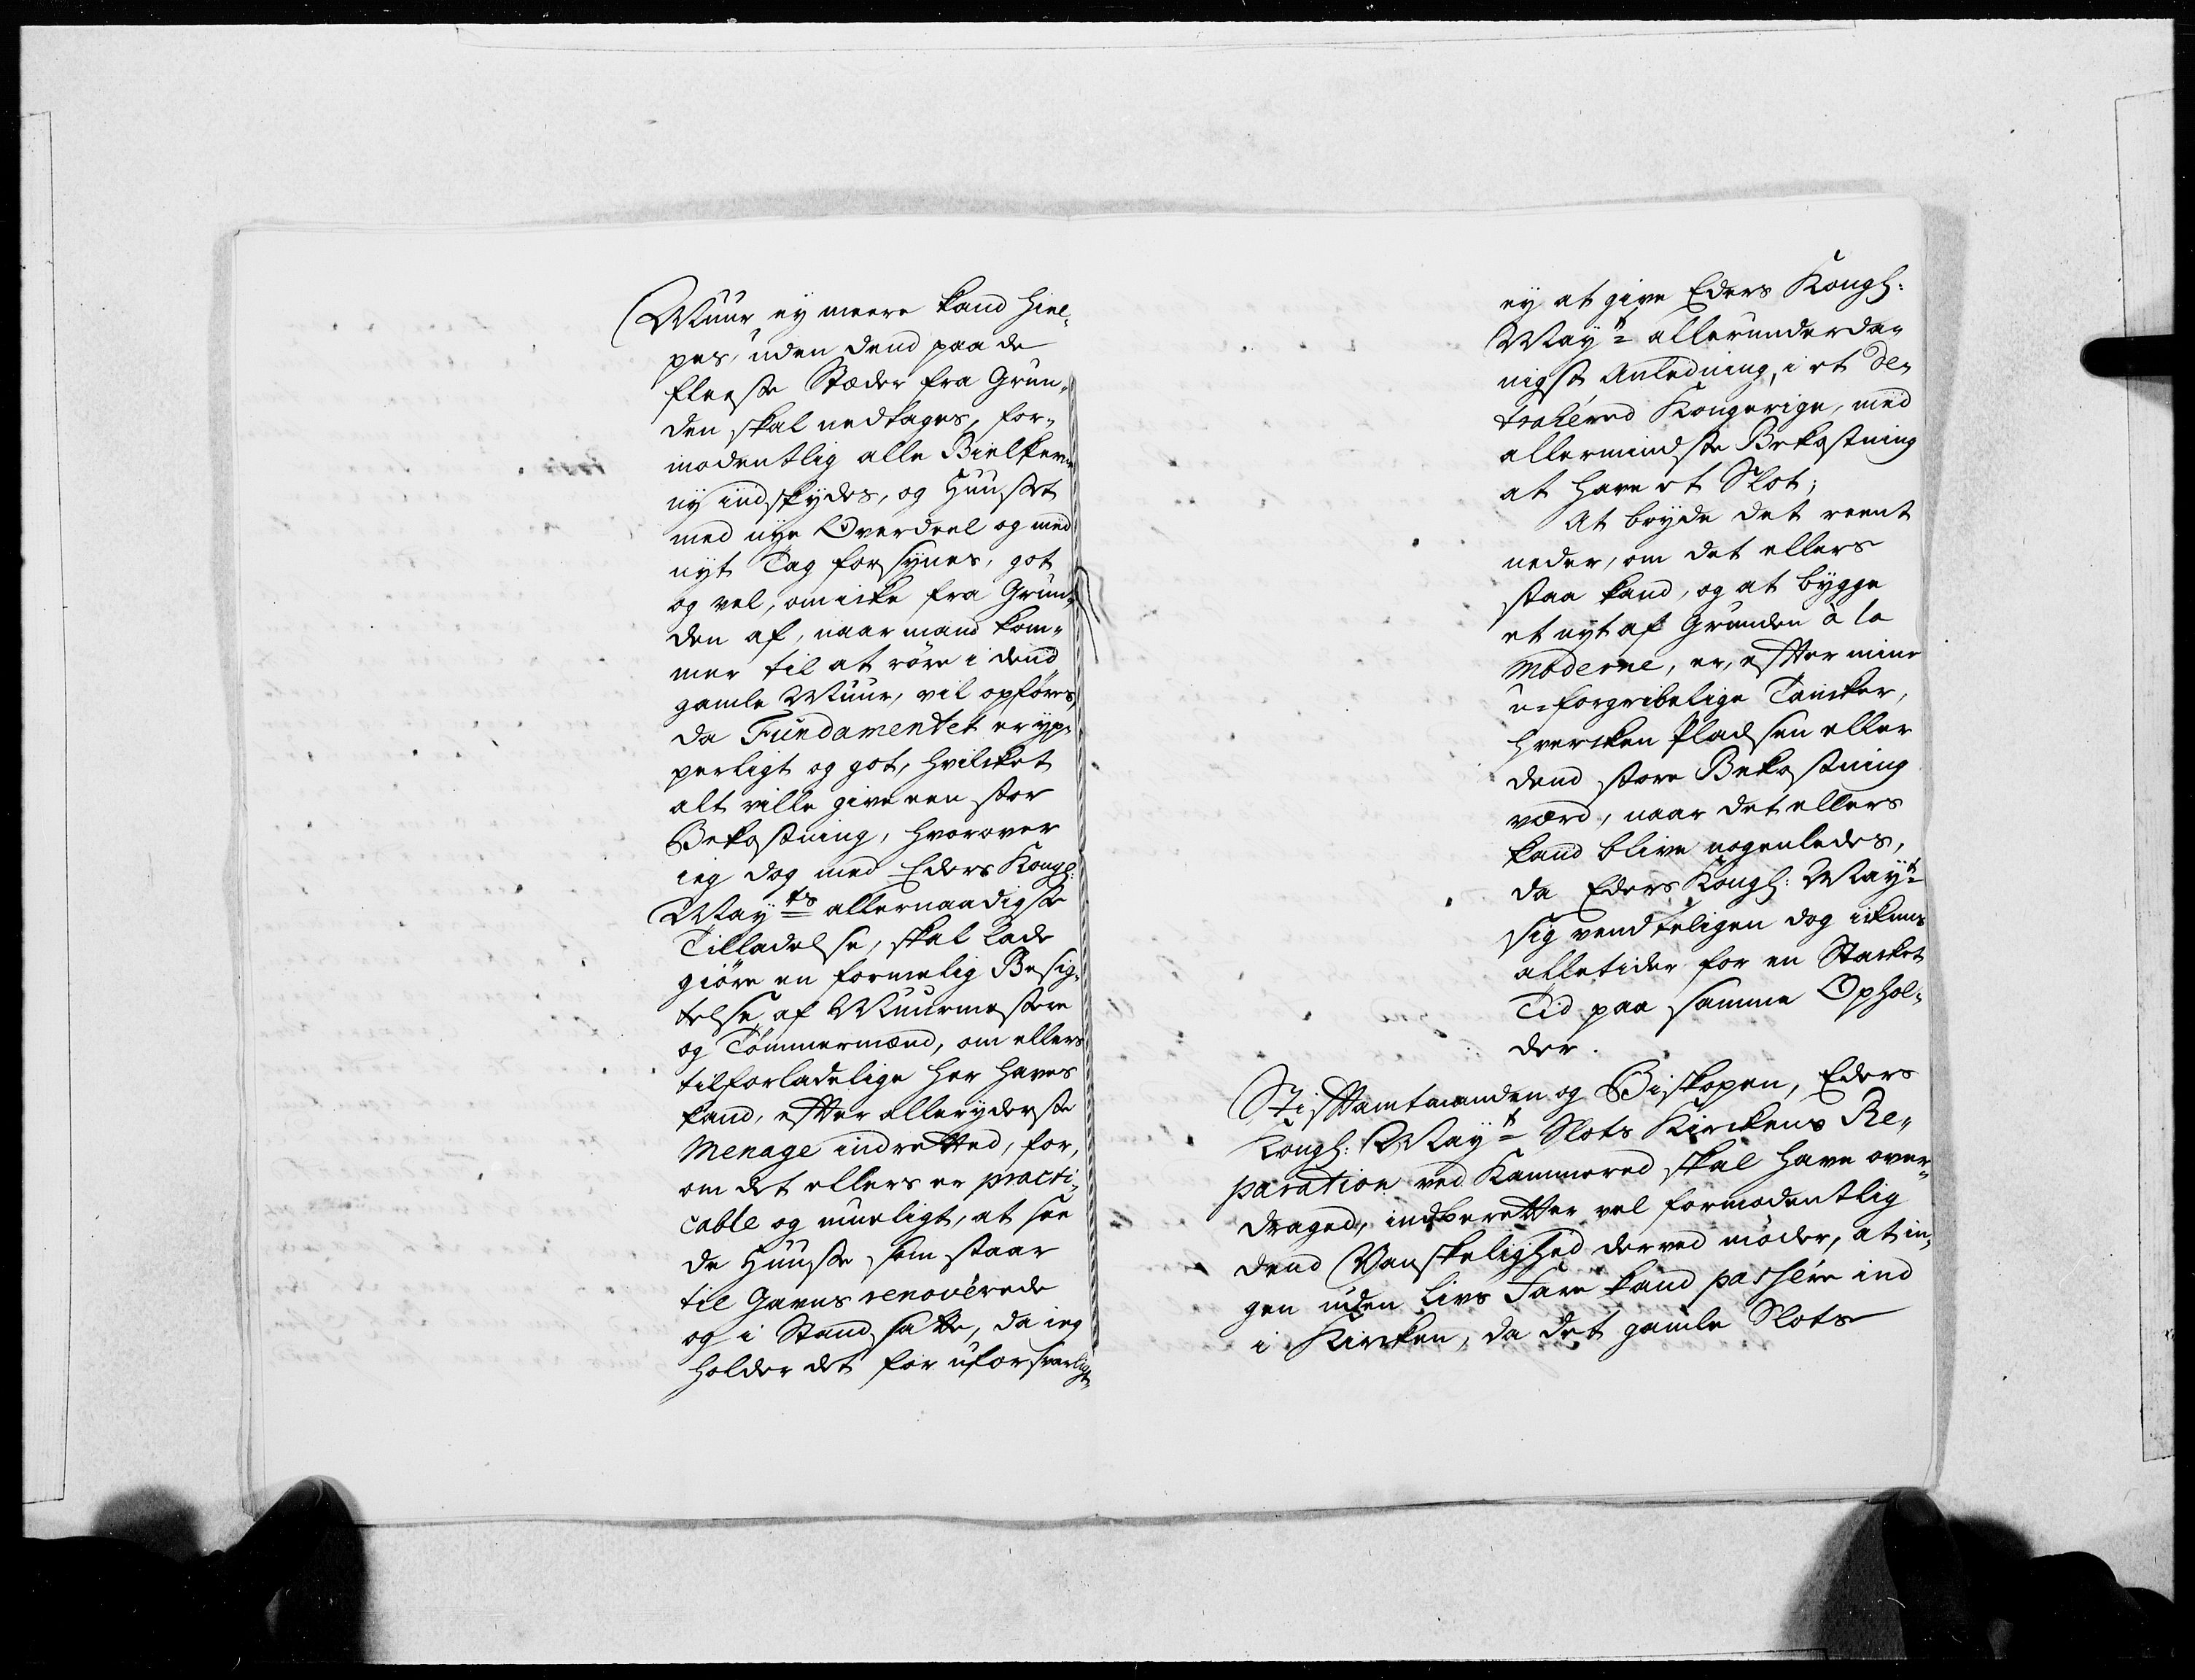 Muur ey meere kand hiel-
pes, uden dend paa de
fleeste Stæder fra Grun-
den skal nedtages, for-
modentlig alle Bielkerne
ny indskydes, og Huuset
med nye Overdeel og med
nyt Tag forsynes, got
og vel, om icke fra Grun-
den af, naar mand kom-
mer til at röre i dend
gamle Muur, vil opföres,
da Fundamentet er yp-
perligt og got, hvilcket
alt ville give een stor
Bekostning, hvorover
ieg dog med Eders Kongl:
Mayts allernaadigste
Tilladelse, skal lade
giöre en formelig Besig-
telse af Muurmestere
og Tömmermænd, om ellers
tilforladelige her haves
kand, efter alleryderste
Menage indretted, for,
om det ellers er practi-
cable og mueligt, at see
de Huuse som staar
til Gavns renoverede
og i Stand satte, da ieg
holder det for uforsvarligt,
ey at give Eders Kongl:
Mayt allerunderda-
nigst Anledning, i et de-
trahered Kongerige, med
allermindste Bekostning
at have et Slot;
At bryde det reent
neder, om det ellers
staa kand, og at bygge
et nyt af Grunden à la
moderne, er, efter mine
u-forgribelige Tancker,
hvercken Pladsen eller
dend store Bekostning
værd, naar det ellers
kand blive nogenledes,
da Eders Kongl: Mayt
sig vendteligen dog ickuns
alletider for en Stacket
Tid paa samme Ophol-
der.
Stiftamtmanden og Biskopen, Eders
Kongl: Mayt Slots Kirckens Re-
paration ved Kammered skal have over-
draged, indberetter vel formodentlig
dend Vanskelighed derved möder, at in-
gen uden livs Fare kand passere ind
i Kircken, da det gamle Slots